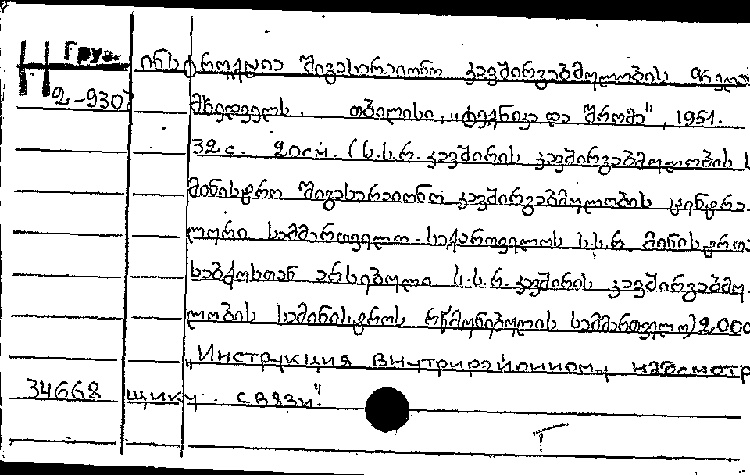 Н Груз.
2-930
ინსტრუქცია შიგასარაიონო კავშირგაბმულობის
მხედველს. თბილისი, „ტექნიკა და შრომა“, 1951.
32 с. 20 см. (ს.ს.რ. კავშირის კავშირგაბმულობის ს
მინისტრო შიგასარაიონო კავშირგაბმულობის ცენტრა
ლური სამმართველო. საქართველოს ს.ს.რ. მინისტრთა
საბჭოსთან არსებული ს.ს.რ. კავშირის კავშირგაბმუ
ლობის სამინისტროს რწმუნებულის სამმართველო) 2.000
„Инструкция внутрирайонному надсмотр
34668 щику связи“